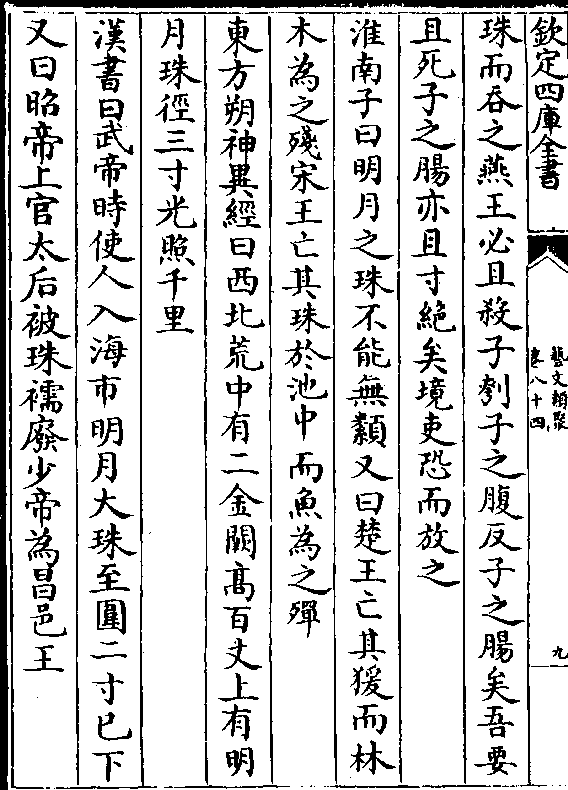 欽定四庫全書
藝文類聚
卷八十四
九
珠而吞之燕王必且殺子刳子之腹反子之腸矣吾要
且死子之腸亦且寸絕矣境吏恐而放之
淮南子曰明月之珠不能無纇又曰楚王亡其猨而林
木為之殘宋王亡其珠於池中而魚為之殫
東方朔神異經曰西北荒中有二金闕髙百丈上有明
月珠徑三寸光照千里
漢書曰武帝時使人入海市明月大珠至圍二寸已下
又曰昭帝上官太后被珠襦廢少帝為昌邑王